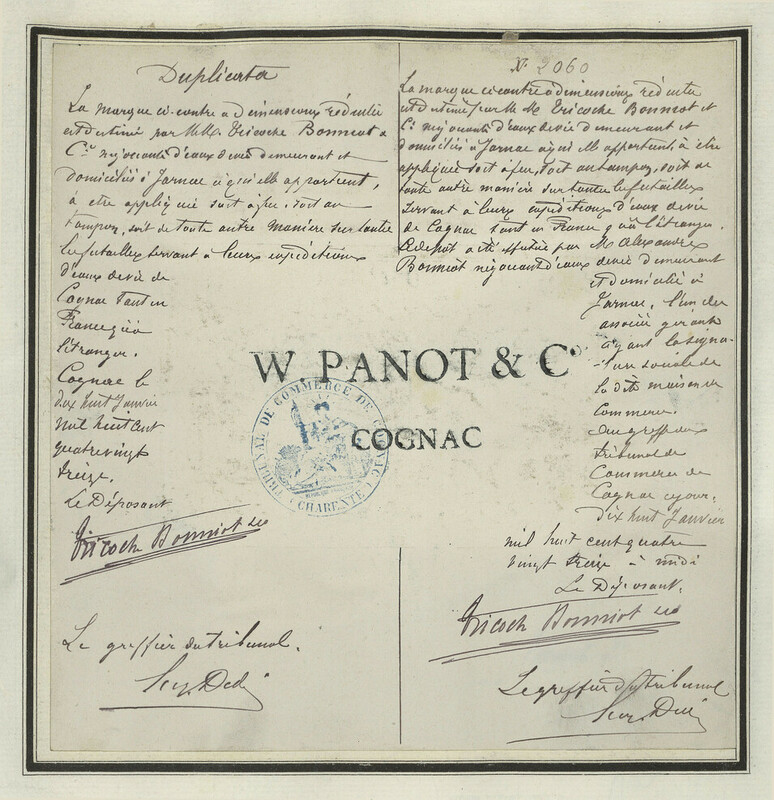 Duplicata
La marque ci-contre à dimensions réduite
est destiné par MM. Tricoche Bonniot &
Cie négociants d'eaux de vie demeurant et
domiciliés à Jarnac à qui elle appartient,
à être appliqué soit à feu, soit au
tampon, soit de toute autre manière sur toutes
les futailles servant à leurs expéditions
d'eaux de vie de
Cognac tant en
France qu'à
l'étranger.
Cognac le
dix huit Janvier
mil huit cent
quatre vingt
treize.
Le Déposant
Tricoche Bonniot & Co
Le greffier du tribunal.
No 2060
La marque ci-contre à dimensions réduite
est destiné par MM. Tricoche Bonniot et
Cie négociants d'eaux de vie demeurant et
domiciliés à Jarnac à qui elle appartient, à être
appliqué soit à feu, soit au tampon, soit de
toute autre manière sur toutes les futailles
servant à leurs expéditions d'eaux de vie
de Cognac tant en France qu'à l'étranger.
Ce dépôt a été effectué par M. Alexandre
Bonniot négociant d'eaux de vie demeurant
et domicilié à
Jarnac, l'un des
associés gérants
ayant la signa-
ture sociale de
la dite maison de
commerce.
Au greffe du
tribunal de
Commerce de
Cognac ce jour,
dix huit Janvier
mil huit cent quatre
vingt treize à midi
Le Déposant,
Tricoche Bonniot & Co
Le greffier du tribunal
W. PANOT & Co
COGNAC
TRIBUNAL DE COMMERCE DE
(CHARENTE)